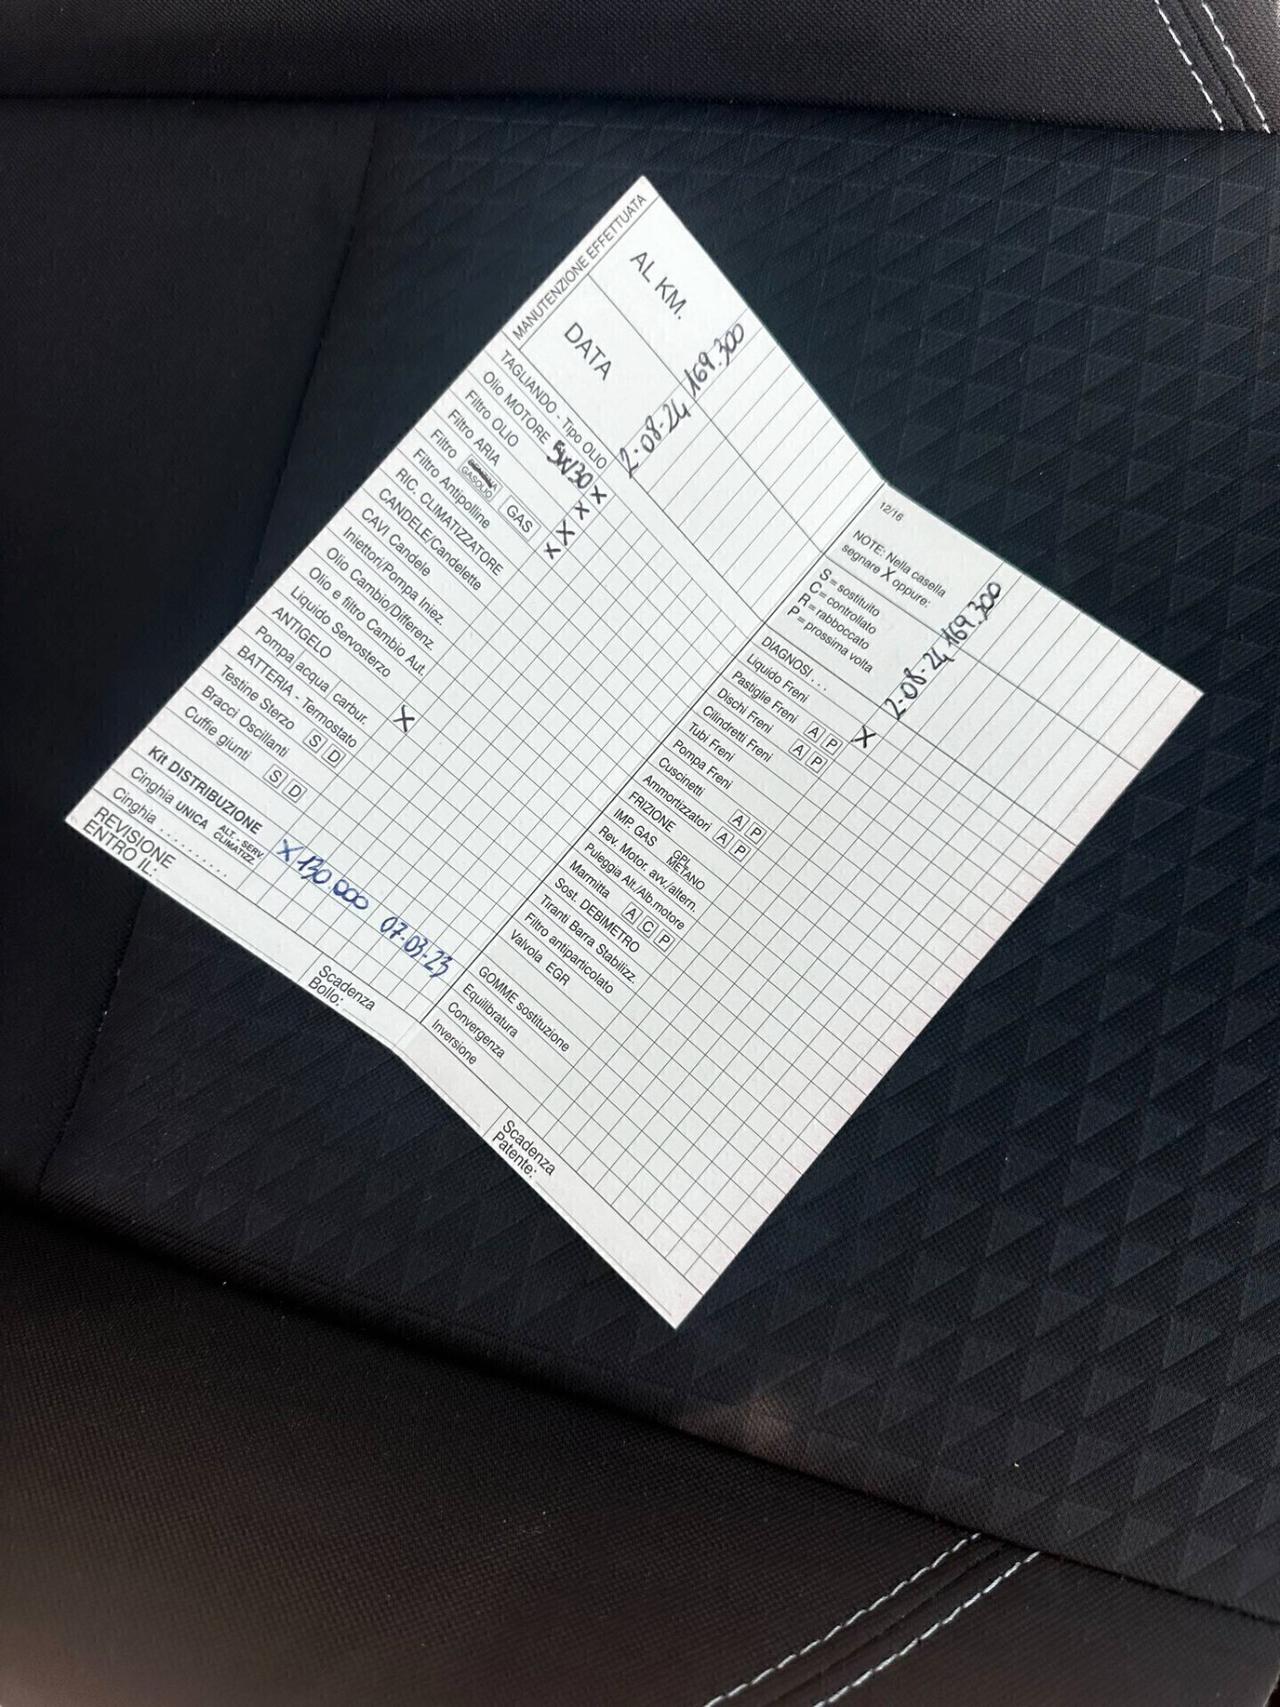 MANUTENZIONE EFFETTUATA
AL KM.
DATA
169.300
2-08-24
TAGLIANDO - Tipo OLIO
Olio MOTORE 5W30 X
Filtro OLIO X
Filtro ARIA X
Filtro GASOLIO GAS X
Filtro Antipolline
RIC. CLIMATIZZATORE
CANDELE/Candelette
CAVI Candele
Iniettori/Pompa Iniez.
Olio Cambio/Differenz.
Olio e filtro Cambio Aut.
Liquido Servosterzo
ANTIGELO
Pompa acqua carbur. X
BATTERIA - Termostato
Testine Sterzo S D
Bracci Oscillanti
Cuffie giunti S D
Kit DISTRIBUZIONE X 130 000 07-03-23
Cinghia UNICA ALT. - SERV. CLIMATIZZ.
Cinghia . . . . . . . . .
REVISIONE
ENTRO IL:
Scadenza
Bollo:
12/16
NOTE: Nella casella
segnare X oppure:
S = sostituito
C = controllato
R = rabboccato
P = prossima volta
2-08-24 169.300
DIAGNOSI . . .
Liquido Freni X
Pastiglie Freni A P
Dischi Freni A P
Cilindretti Freni
Tubi Freni
Pompa Freni
Cuscinetti A P
Ammortizzatori A P
FRIZIONE
IMP. GAS GPL METANO
Rev. Motor. avv./altern.
Puleggia Alt./Alb.motore
Marmitta A C P
Sost. DEBIMETRO
Tiranti Barra Stabilizz.
Filtro antiparticolato
Valvola EGR
GOMME sostituzione
Equilibratura
Convergenza
Inversione
Scadenza
Patente: